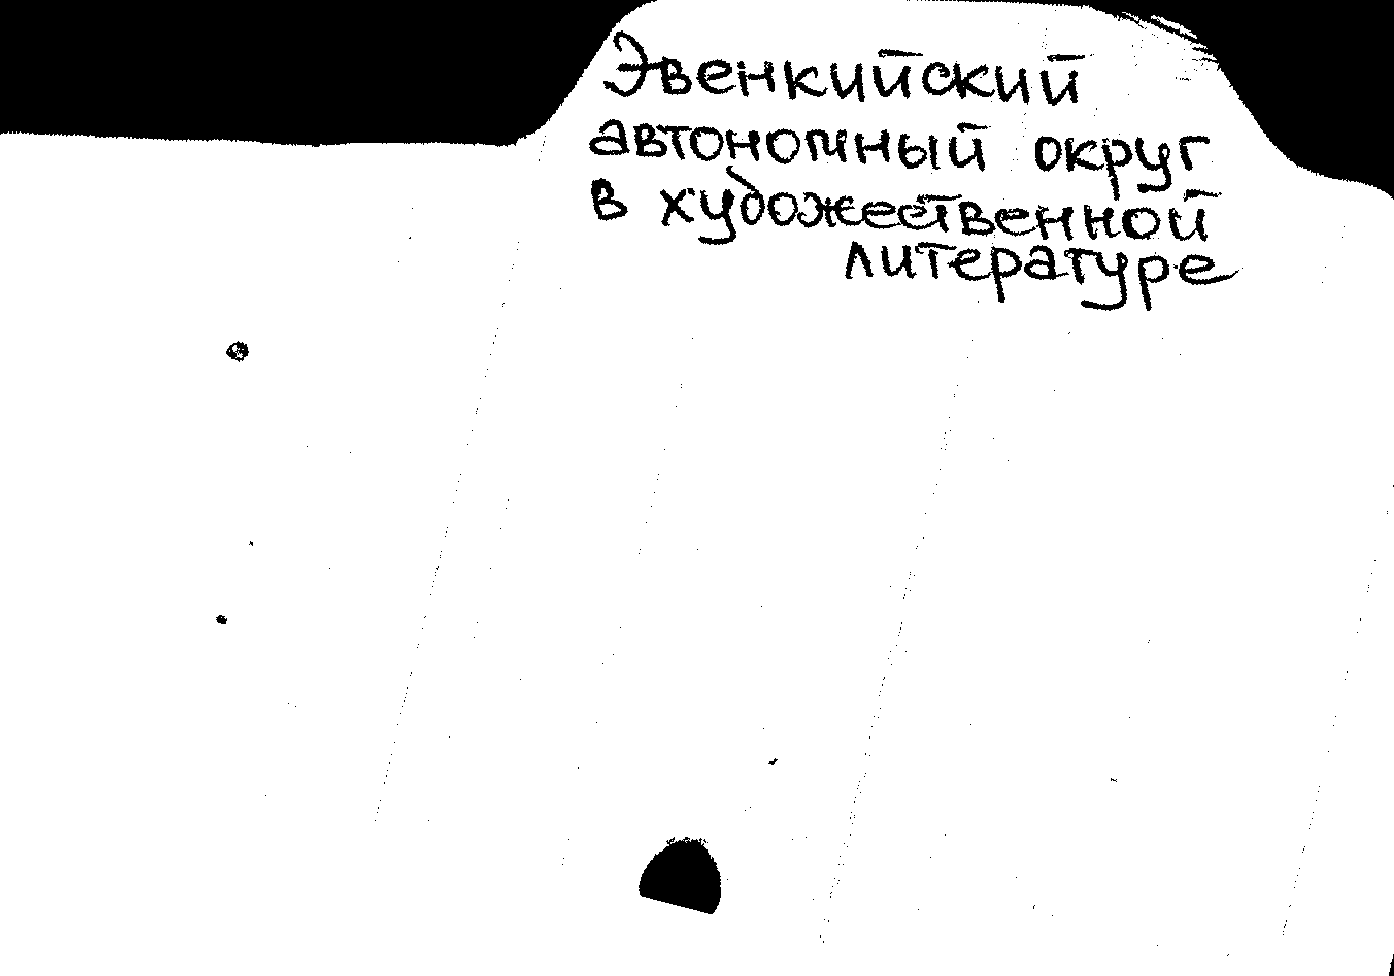 Эвенкийский
автономный округ
в художественной
литературе